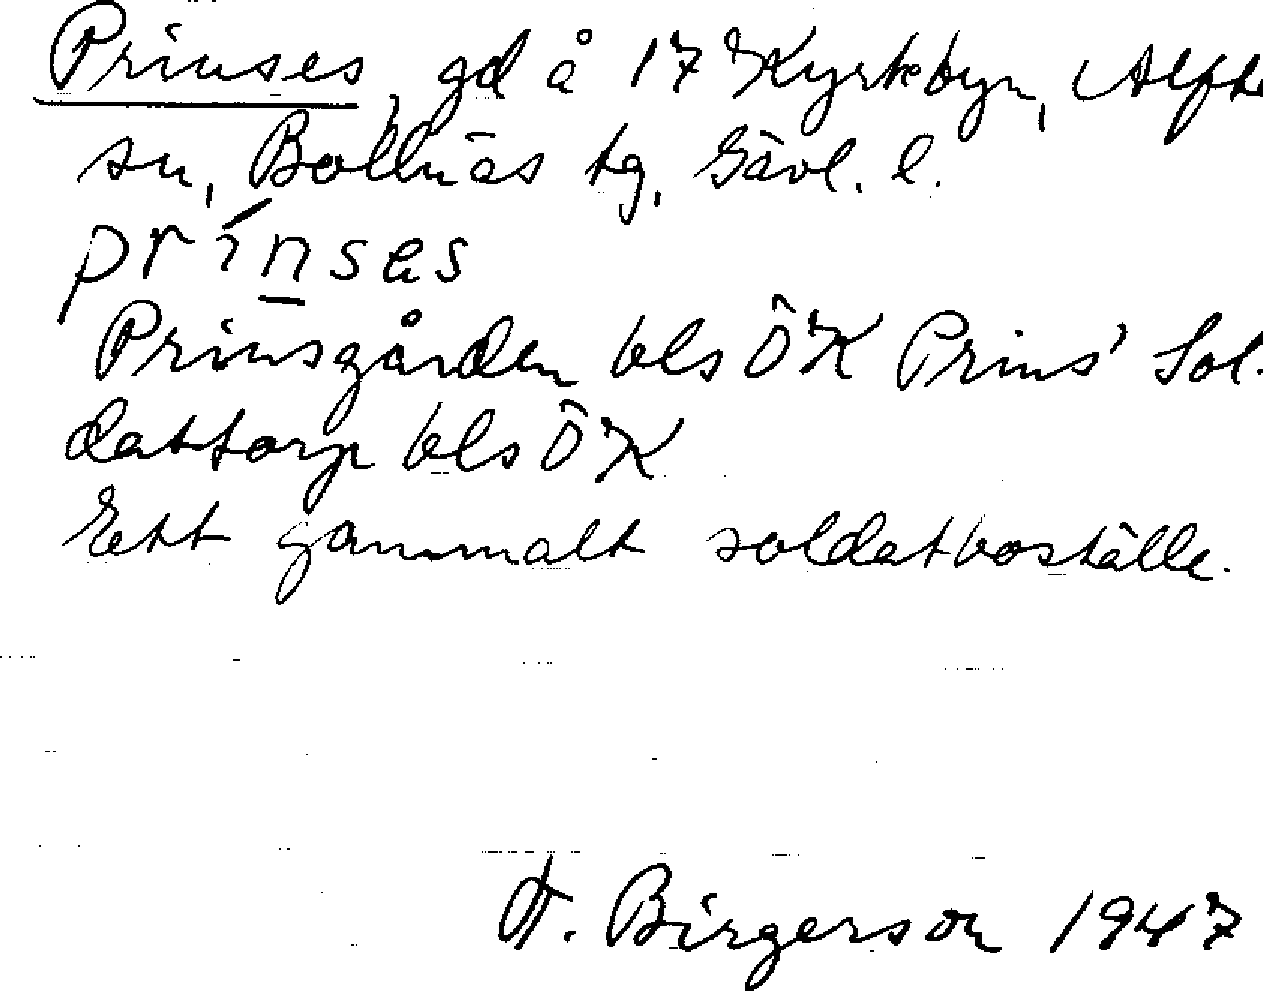 Prinses, gd å 17 Kyrkbyn, Alfta
sn, Bollnäs tg, Gävl. l.
prinses
Prinsgården bls ÖK Prins' Sol-
dattorp bls ÖK
Ett gammalt soldatboställe.
F. Birgerson 1947